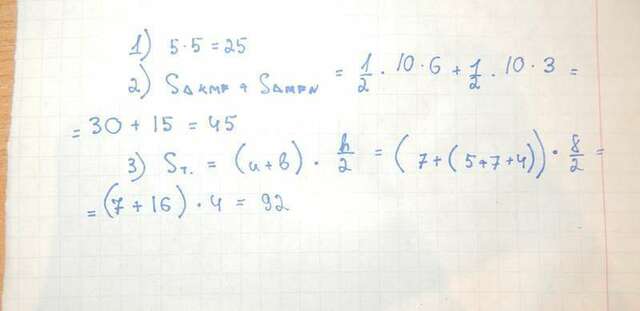 1) 5·5=25
2) S△KMF + S△MFN = 1/2 · 10·6 + 1/2 · 10·3 =
= 30 + 15 = 45
3) Sт. = (a+b) · h/2 = (7+(5+7+4)) · 8/2 =
= (7+16) · 4 = 92